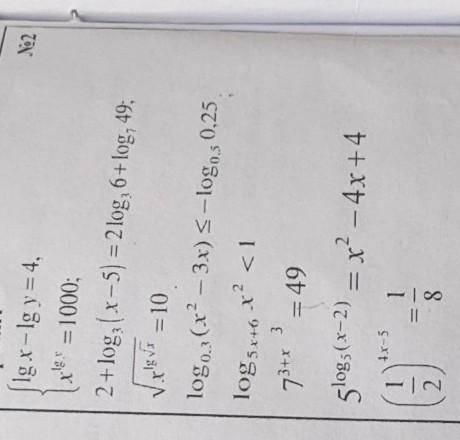 №2
{lg x – lg y = 4,
x^{lg y} = 1000;
2 + log₃(x – 5) = 2 log₃ 6 + log₇ 49;
√(x^{lg √x}) = 10
log₀.₃(x² – 3x) ≤ –log₀.₅ 0,25 ;
log_{5x+6} x² < 1
7^{3+x} ³ = 49
5^{log₅(x–2)} = x² – 4x + 4
(1/2)^{4x–5} = 1/8